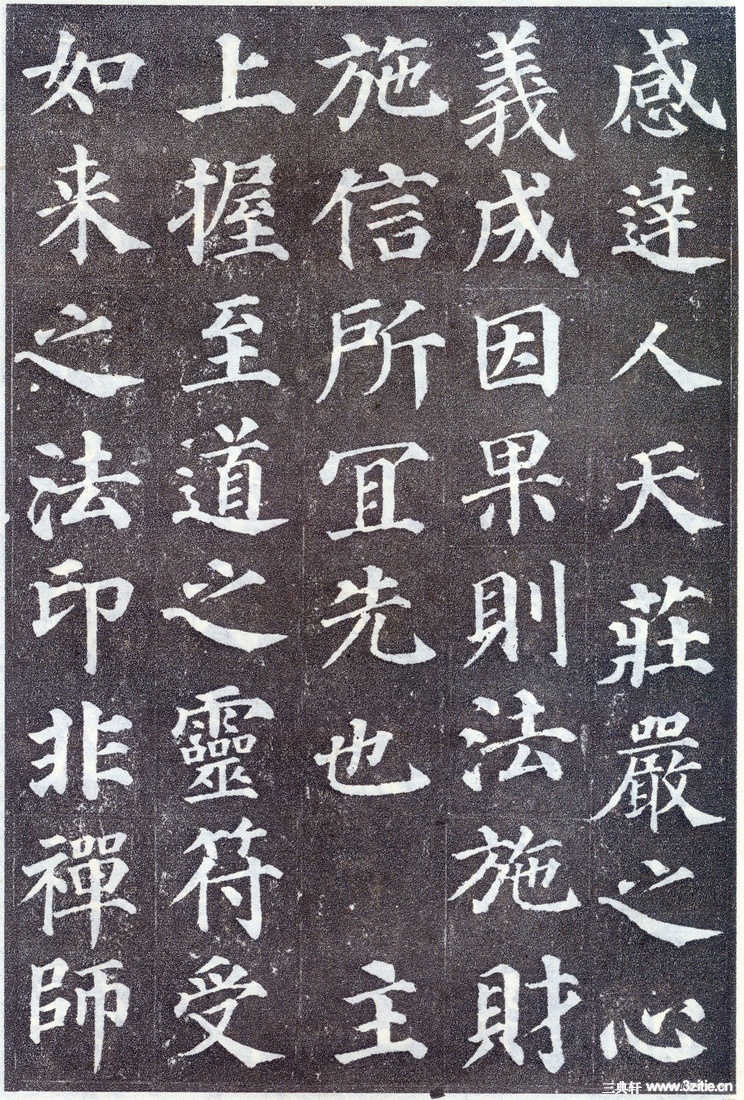 感達人天莊嚴之心
義成因果則法施財
施信所宜先也 主
上握至道之靈符受
如来之法印非禪師
三典轩 www.3zitie.cn